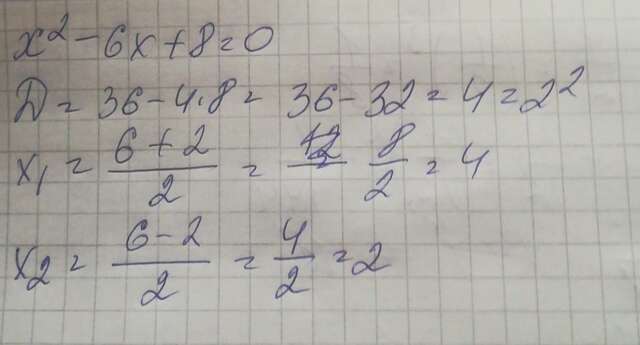 x² - 6x + 8 = 0
Д = 36 - 4·8 = 36 - 32 = 4 = 2²
x₁ = (6 + 2)/2 = 8/2 = 4
x₂ = (6 - 2)/2 = 4/2 = 2